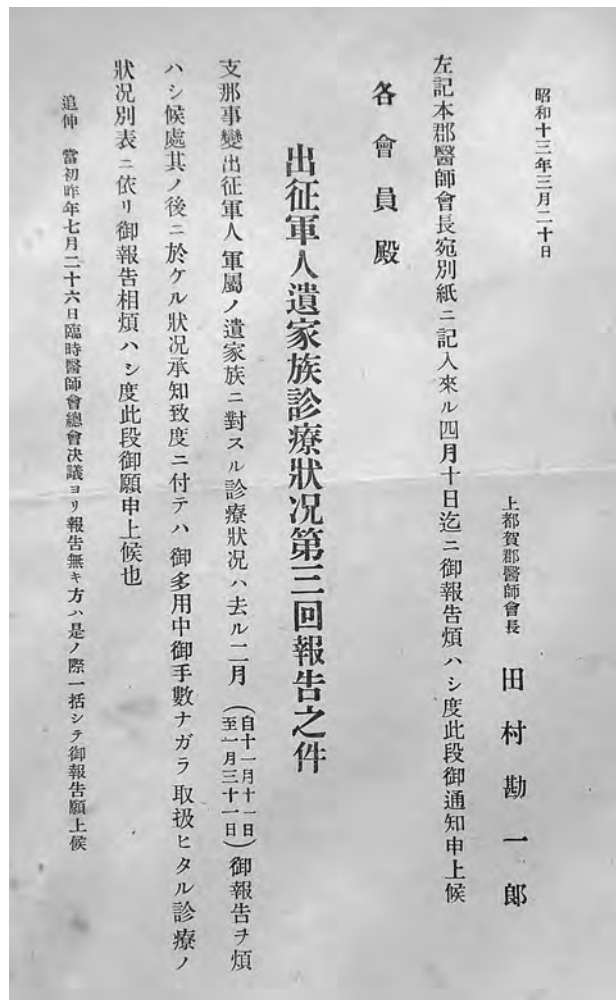 昭和十三年三月二十日
上都賀郡醫師會長　田村勘一郎
左記本郡醫師會長宛別紙ニ記入來ル四月十日迄ニ御報告煩ハシ度此段御通知申上候
各會員殿
出征軍人遺家族診療狀况第三回報告之件
支那事變出征軍人軍屬ノ遺家族ニ對スル診療狀况ハ去ル二月（自十一月十一日至一月三十一日）御報告ヲ煩
ハシ候處其ノ後ニ於ケル狀况承知致度ニ付テハ御多用中御手數ナガラ取扱ヒタル診療ノ
狀况別表ニ依リ御報告相煩ハシ度此段御願申上候也
追伸　當初昨年七月二十六日臨時醫師會總會决議ヨリ報告無キ方ハ是ノ際一括シテ御報告願上候